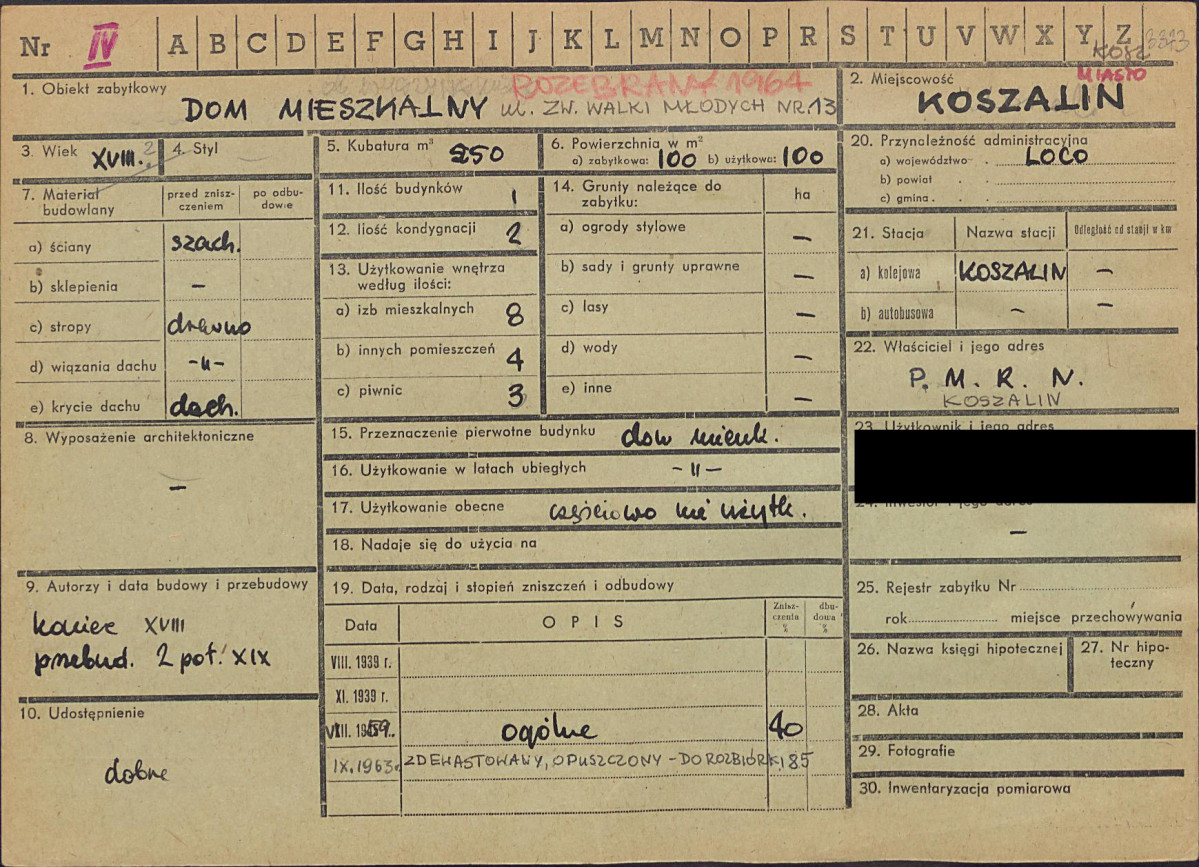 Nr IV A B C D E F G H I J K L M N O P R S T U V W X Y Z
KOSZ
MIASTO
1. Obiekt zabytkowy
ROZEBRANY 1964
DOM MIESZKALNY ul. ZW. WALKI MŁODYCH NR. 13
2. Miejscowość
KOSZALIN
3. Wiek XVIII. ?
4. Styl
5. Kubatura m³ 250
6. Powierzchnia w m²
a) zabytkowa: 100 b) użytkowa: 100
7. Materiał budowlany
przed zniszczeniem
po odbudowie
a) ściany szach.
b) sklepienia –
c) stropy drewno
d) wiązania dachu -"-
e) krycie dachu dach.
8. Wyposażenie architektoniczne
–
9. Autorzy i data budowy i przebudowy
koniec XVIII
przebud. 2 poł. XIX
10. Udostępnienie
dobre
11. Ilość budynków 1
12. Ilość kondygnacji 2
13. Użytkowanie wnętrza
według ilości:
a) izb mieszkalnych 8
b) innych pomieszczeń 4
c) piwnic 3
14. Grunty należące do
zabytku:
ha
a) ogrody stylowe –
b) sady i grunty uprawne –
c) lasy –
d) wody –
e) inne –
15. Przeznaczenie pierwotne budynku dom mieszk.
16. Użytkowanie w latach ubiegłych -"-
17. Użytkowanie obecne częściowo nie użytk.
18. Nadaje się do użycia na
19. Data, rodzaj i stopień zniszczeń i odbudowy
Data
OPIS
Zniszczenia %
dbudowa %
VIII. 1939 r.
XI. 1939 r.
VIII. 1959 r. ogólne 40
IX. 1963 r. ZDEWASTOWANY, OPUSZCZONY – DO ROZBIÓRKI 85
20. Przynależność administracyjna
a) województwo LOCO
b) powiat
c) gmina
21. Stacja
Nazwa stacji
Odległość od stacji w km
a) kolejowa KOSZALIN –
b) autobusowa – –
22. Właściciel i jego adres
P. M. R. N.
KOSZALIN
23. Użytkownik i jego adres
24. Inwestor i jego adres
–
25. Rejestr zabytku Nr
rok miejsce przechowywania
26. Nazwa księgi hipotecznej
27. Nr hipoteczny
28. Akta
29. Fotografie
30. Inwentaryzacja pomiarowa